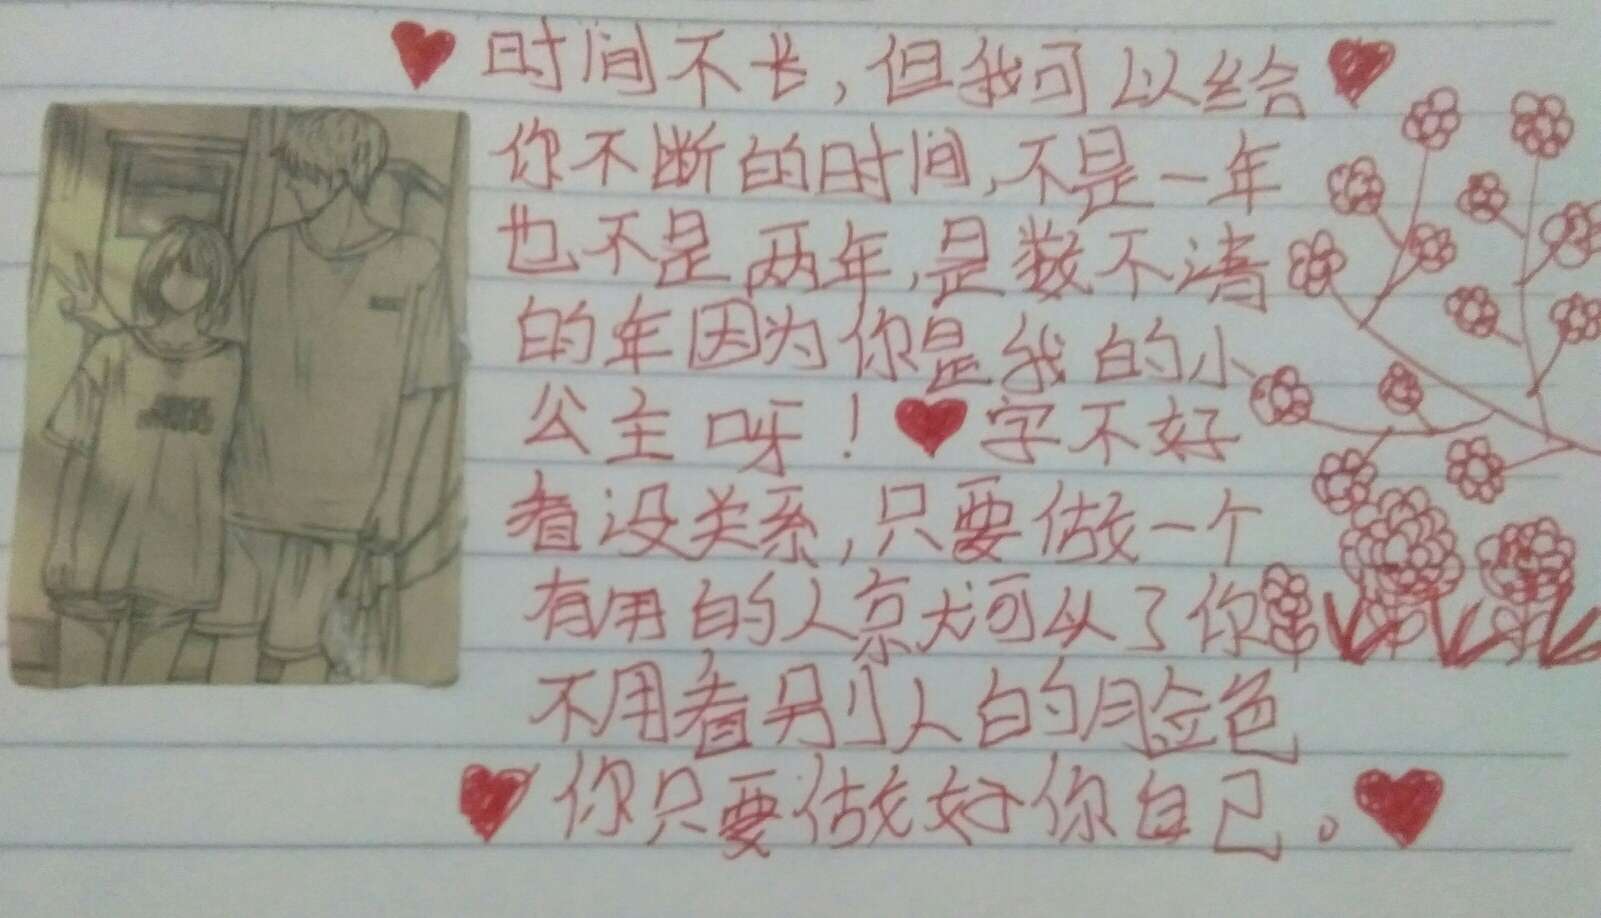 时间不长，但我可以给
你不断的时间，不是一年
也不是两年，是数不清
的年因为你是我的小
公主呀！字不好
看没关系，只要做一个
有用的人就可以了你
不用看别人的脸色
你只要做好你自己。